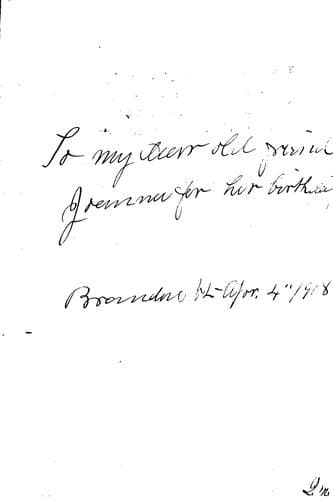 To my dear old friend
Joanna for her birthda
Brandon Vt- Apr. 4" 1918